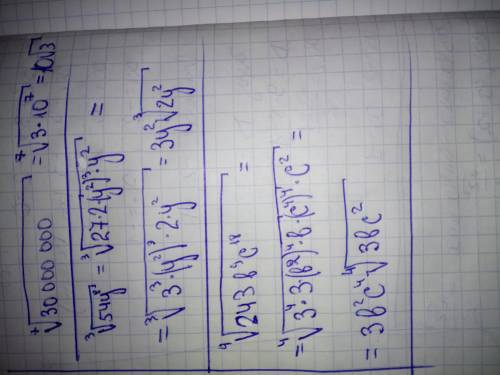 ⁷√30 000 000 = ⁷√3·10⁷ = 10√3
³√54y⁸ = ³√27·2·(y²)³·y² =
= ³√3³·(y²)³·2·y² = 3y² ³√2y²
⁴√243b⁹c¹⁸ =
= ⁴√3⁴·3(b²)⁴·b·(c⁴)⁴·c² =
= 3b²c⁴ ⁴√3bc²